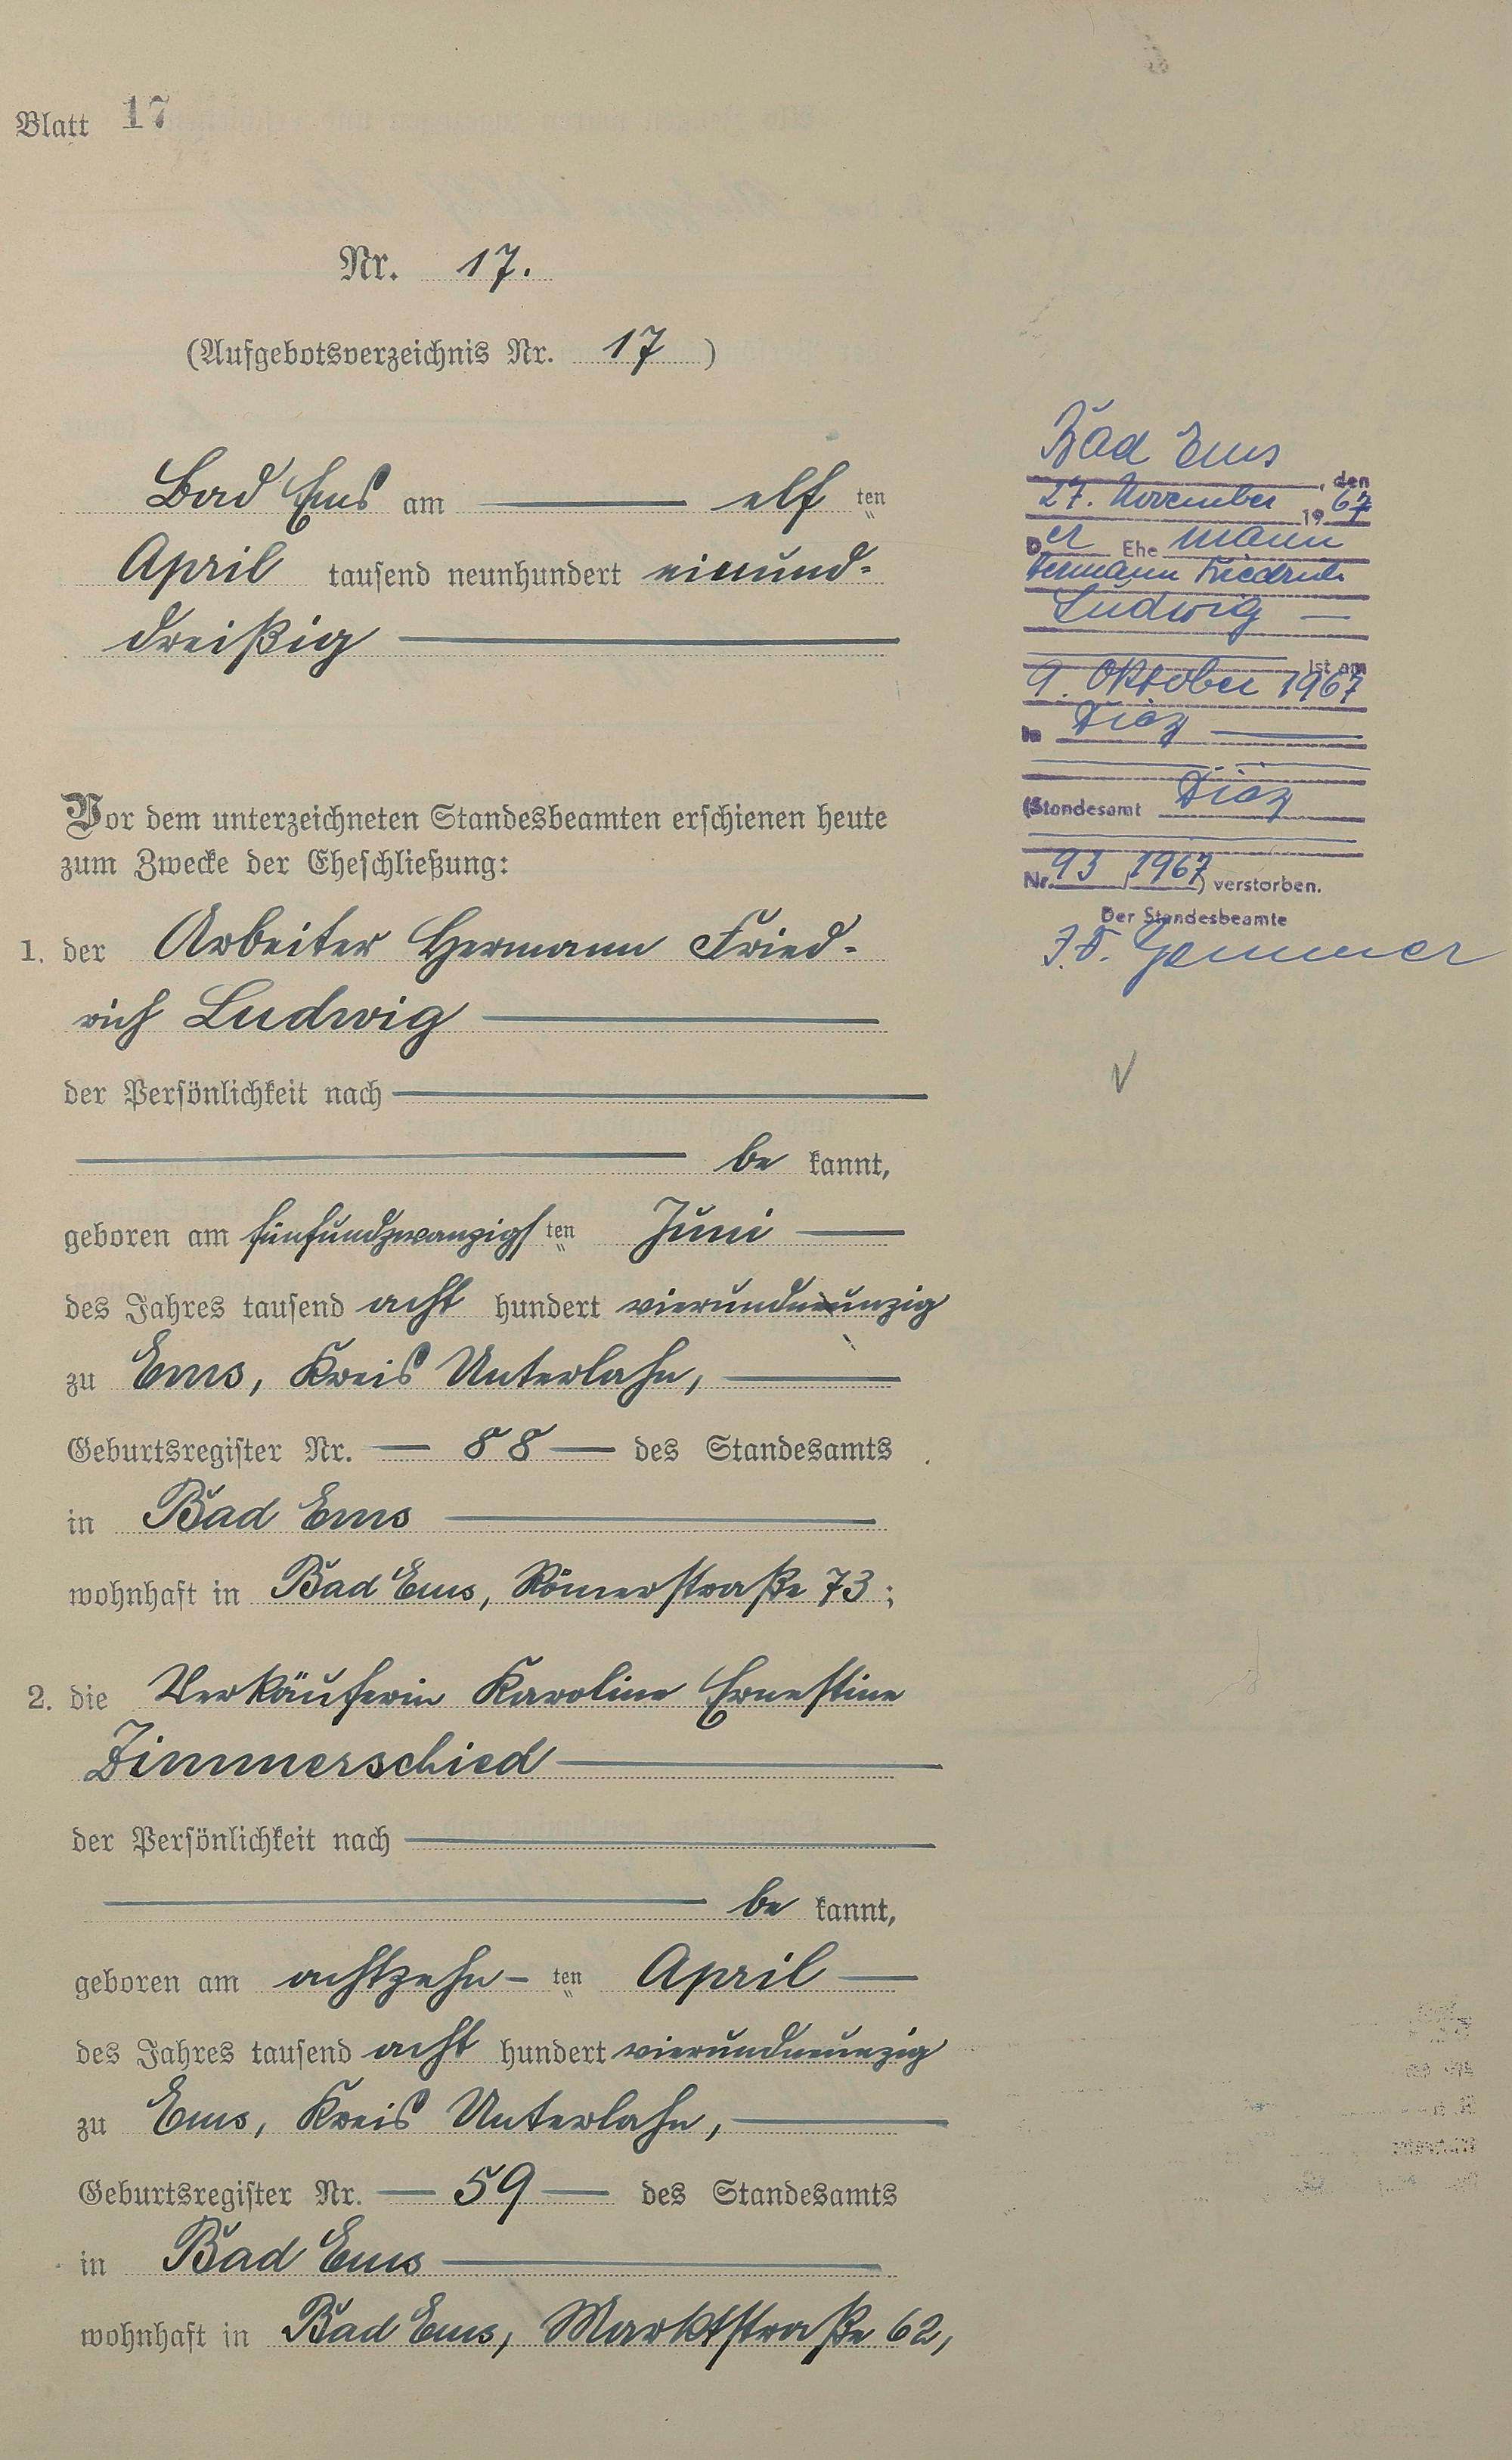 Blatt 17
Nr. 17.
(Aufgebotsverzeichnis Nr. 17 )
Bad Ems am elf ten
April tausend neunhundert einund-
dreißig
Vor dem unterzeichneten Standesbeamten erschienen heute
zum Zwecke der Eheschließung:
1. der Arbeiter Hermann Fried-
rich Ludwig
der Persönlichkeit nach
be kannt,
geboren am fünfundzwanzigs ten Juni
des Jahres tausend acht hundert vierundneunzig
zu Ems, Kreis Unterlahn,
Geburtsregister Nr. 88 des Standesamts
in Bad Ems
wohnhaft in Bad Ems, Römerstraße 73;
2. die Verkäuferin Karoline Ernestine
Zimmerschied
der Persönlichkeit nach
be kannt,
geboren am achtzehn- ten April
des Jahres tausend acht hundert vierundneunzig
zu Ems, Kreis Unterlahn,
Geburtsregister Nr. 59 des Standesamts
in Bad Ems
wohnhaft in Bad Ems, Marktstraße 62,
Bad Ems
, den
27. November 1967
Der Ehe mann
Hermann Friedrich
Ludwig
ist am
9. Oktober 1967
in Diez
(Standesamt Diez
Nr. 93 / 1967) verstorben.
Der Standesbeamte